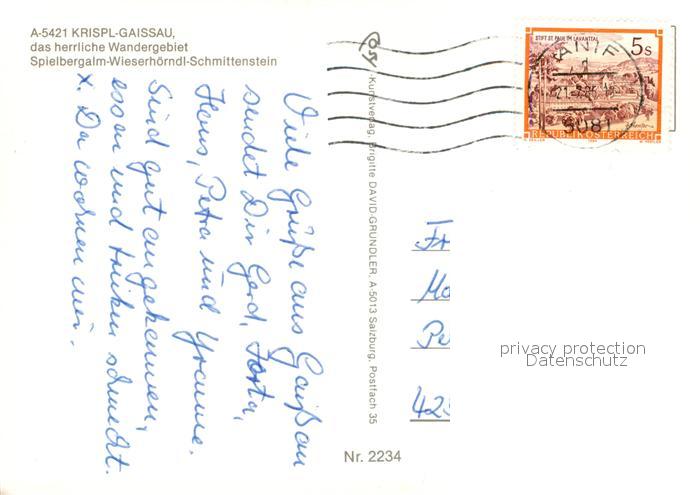 A-5421 KRISPL-GAISSAU,
das herrliche Wandergebiet
Spielbergalm-Wieserhörndl-Schmittenstein
Viele Grüße aus Gaißau
sendet Dir Gerd,
Hans, Petra und Yvonne.
Sind gut angekommen,
essen und trinken schmeckt.
x. Da wohnen wir.
Kunstverlag, Brigitte DAVID-GRUNDLER, A-5013 Salzburg, Postfach 35
Nr. 2234
STIFT ST. PAUL IM LAVANTTAL
5 S
REPUBLIK ÖSTERREICH
ANIF
Fr
Mo
Pe
425
privacy protection
Datenschutz